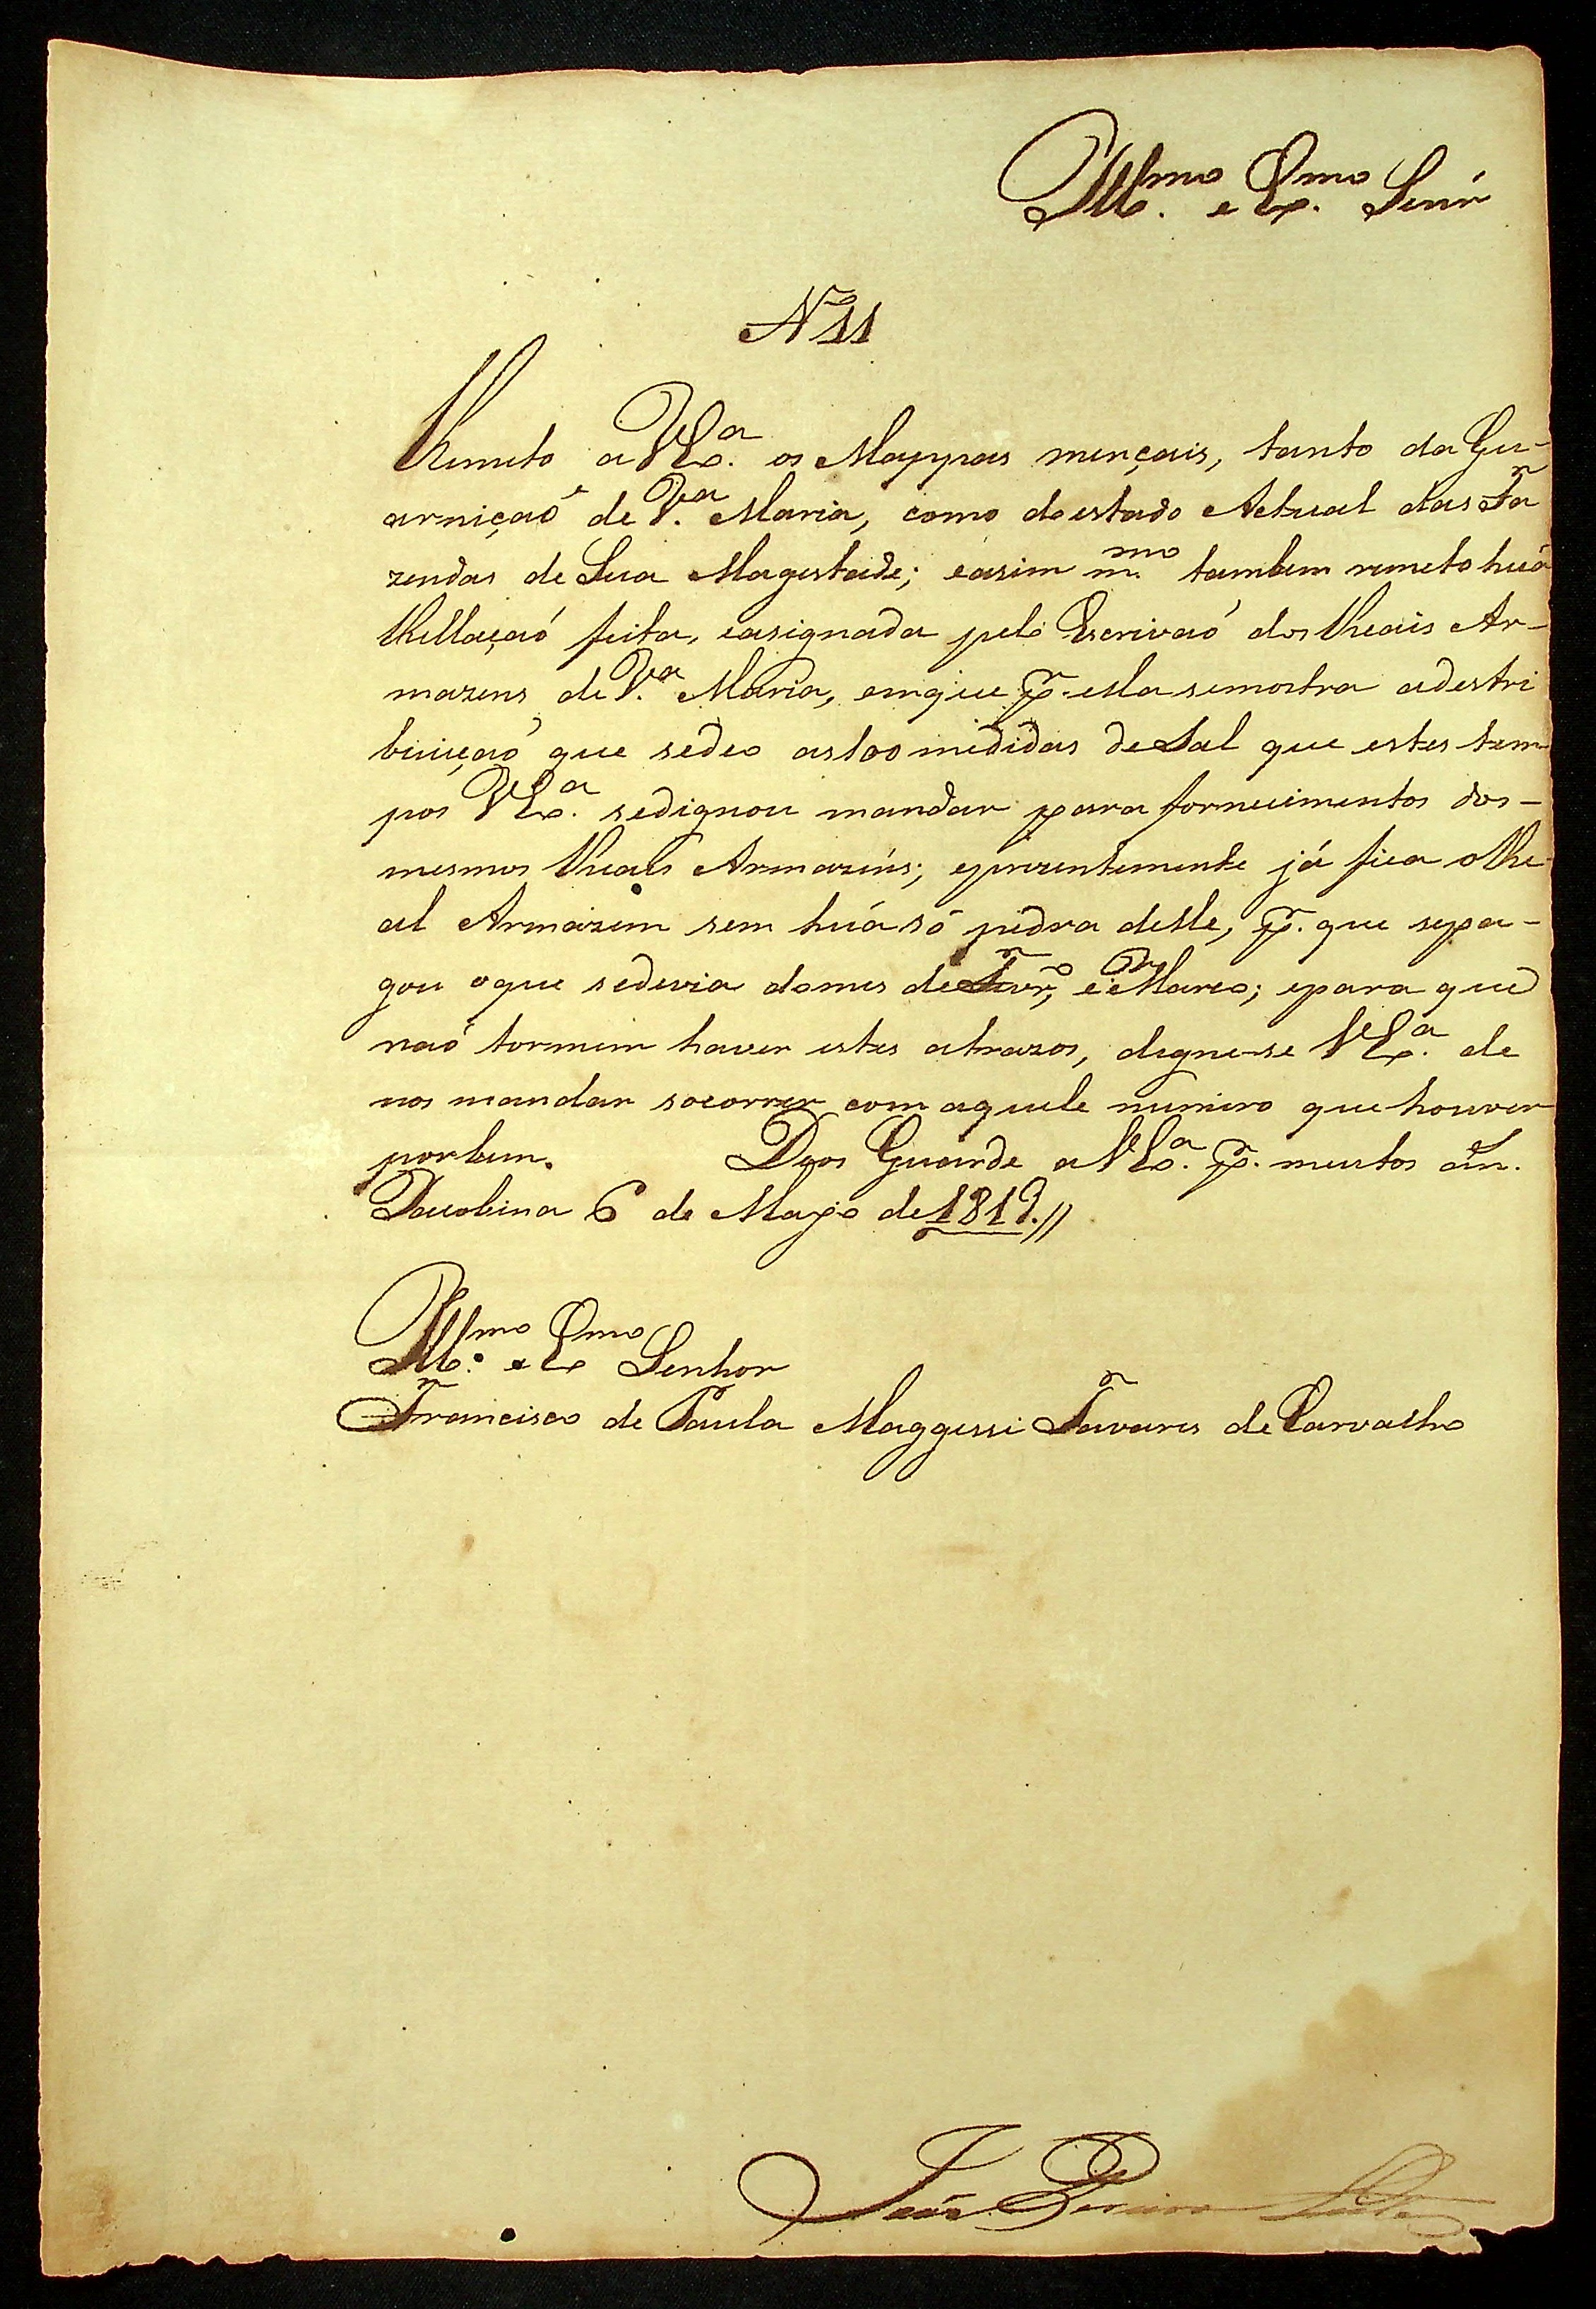 Ill.mo e Ex.mo Senr
N.º 11
Remeto a V Ex.a os Mappas mençais, tanto da Gu-
arniçaó de V.a Maria, como do estado Actual das Fa
zendas de Sua Magestade; easim m.mo tambem remeto huá
Rellaçaó feita, easignada pelo Escrivaó dos Reais Ar-
mazens de V.a Maria, emque p.r esla semostra adestri
buiçaó que sedeo as 100 medidas de Sal que estes tem
pos V Ex.a sedignou mandar para fornecimentos dos-
mesmos Reais Armazéns; eprezentemente já fica o Re-
al Armazem sem huá só pedra delle, p.r que sepa-
gou oque sedevia domes de Fevr.o, e Março; epara que
naó tornem haver estes atrazos, digne-se V Ex.a de
nos mandar socorrer com aquele numero que houver
porbem. Deos Guarde a V Ex.a p.r muitos an.
Jacobina 6 de Mayo de 1819.//
Ill.mo e Ex.mo Senhor
Francisco de Paula Maggessi Tavares de Carvalho
Joaó Pereira Leite